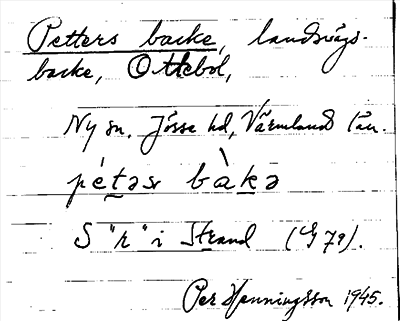 Petters backe, landsvägs-
backe, Ottebol,
Ny sn. Jösse hd, Värmlands län.
pétəsr bàkə
S "k" i Strand (G 79).
Per Henningsson 1945.